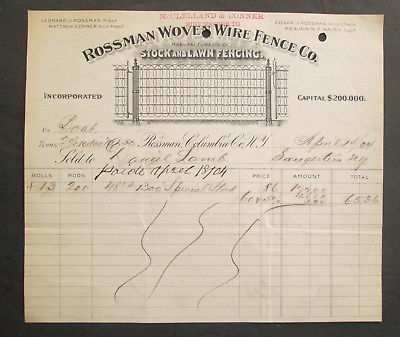 McLELLAND & CONNER
SUCCESSORS TO
LEONARD J. ROSSMAN, PREST.
MATTHEW CONNER VICE PREST.
EDGAR J. ROSSMAN, SEC'Y & TREAS.
BENJAMIN F. SUPT.
ROSSMAN WOVEN WIRE FENCE CO.
MANUFACTURERS OF
STOCK AND LAWN FENCING.
INCORPORATED
CAPITAL $200.000.
Via Boat
Terms Rossman, Columbia Co. N.Y. April 1904
Sold to Daniel Lamb Saugerties NY
Paid April 18/04
ROLLS RODS PRICE AMOUNT TOTAL
13 200 48 in 1300 Special Stand 86 172.00
60 65.36